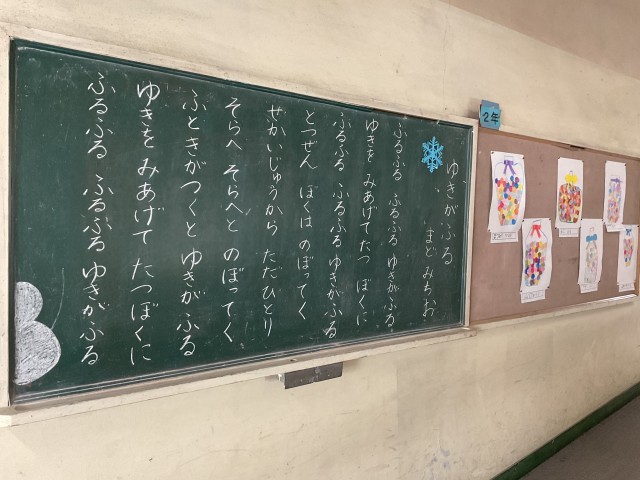 ゆきがふる
まど みちお
ふるふる ふるふる ゆきがふる
ゆきを みあげて たつ ぼくに
ふるふる ふるふる ゆきがふる
とつぜん ぼくは のぼってく
せかいじゅうから ただひとり
そらへ そらへと のぼってく
ふときがつくと ゆきが ふる
ゆきを みあげて たつぼくに
ふるふる ふるふる ゆきがふる
2年